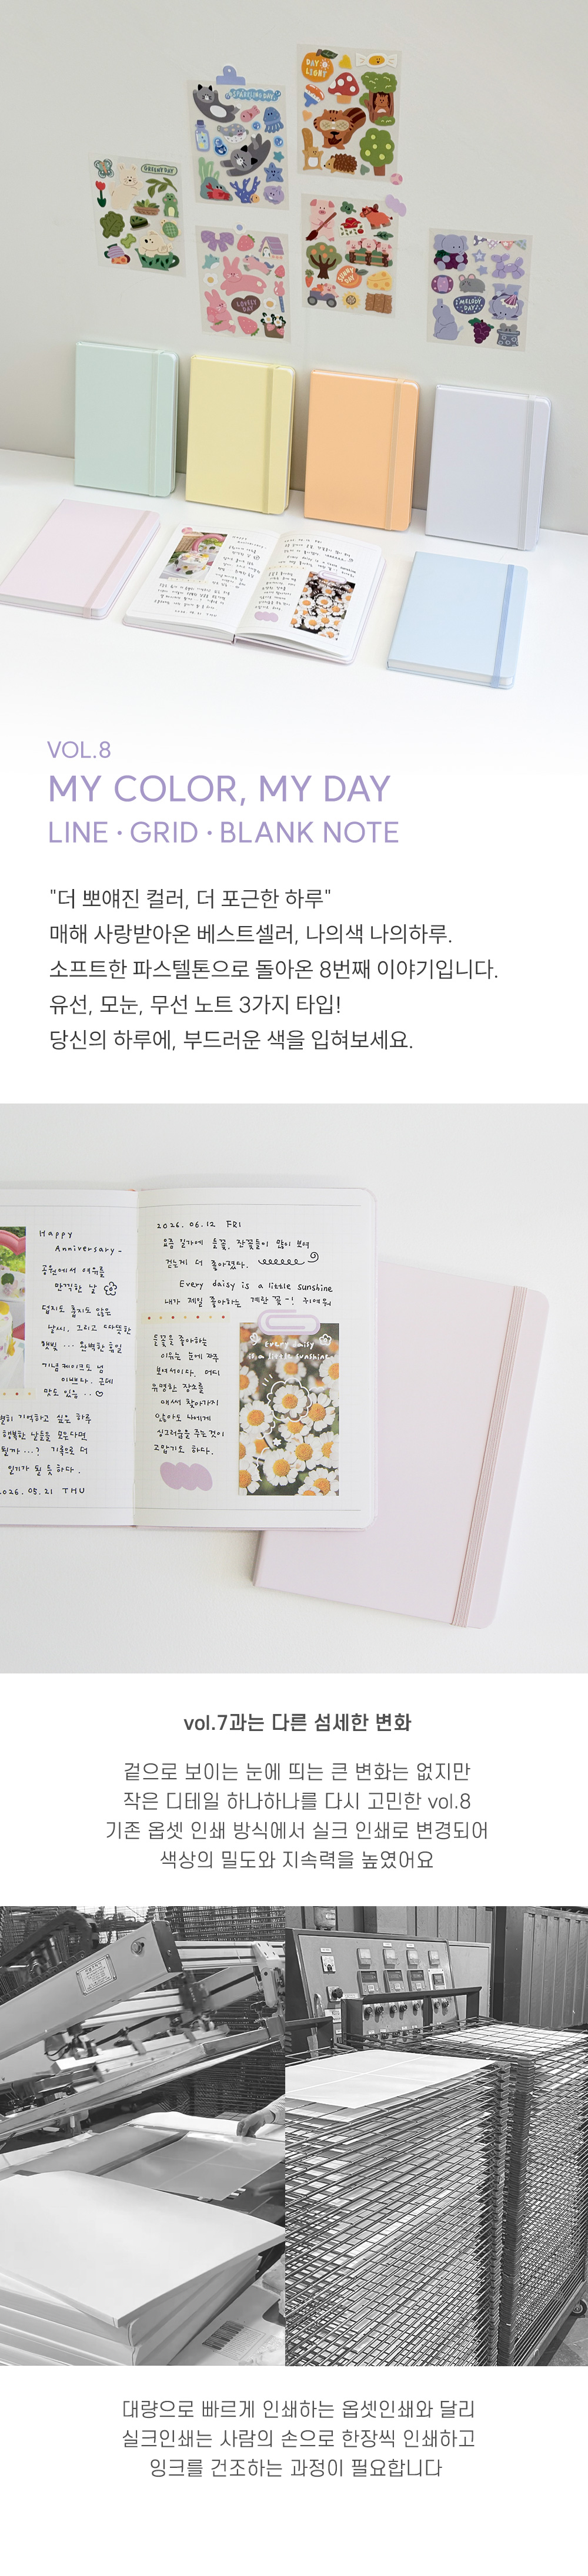 DAY LIGHT
SPARKLING DAY
GREENY DAY
LOVELY DAY
SUNNY DAY
MELODY DAY
VOL.8
MY COLOR, MY DAY
LINE · GRID · BLANK NOTE
"더 뽀얘진 컬러, 더 포근한 하루"
매해 사랑받아온 베스트셀러, 나의색 나의하루.
소프트한 파스텔톤으로 돌아온 8번째 이야기입니다.
유선, 모눈, 무선 노트 3가지 타입!
당신의 하루에, 부드러운 색을 입혀보세요.
Happy
Anniversary-
공원에서 여유를
만끽한 날
덥지도 춥지도 않은
날씨, 그리고 따뜻한
햇빛 ... 완벽한 휴일
기념 케이크도 넘
이쁘다. 근데
맛도 있음..
기억하고 싶은 하루
행복한 날들을 모은다면
될까...? 기록으로 더
일기가 될 듯 하다.
2026. 05. 21 THU
2026. 06. 12 FRI
요즘 길가에 들꽃, 잔꽃들이 많이 보여
걷는게 더 좋아졌다.
Every daisy is a little sunshine
내가 제일 좋아하는 계란 꽃-! 귀여워
들꽃을 좋아하는
이유는 눈에 자주
보여서이다. 어디
유명한 장소를
애써 찾아가지
않아도 나에게
싱그러움을 주는것이
고맙기도 하다.
every daisy
is a little sunshine
vol.7과는 다른 섬세한 변화
겉으로 보이는 눈에 띄는 큰 변화는 없지만
작은 디테일 하나하나를 다시 고민한 vol.8
기존 옵셋 인쇄 방식에서 실크 인쇄로 변경되어
색상의 밀도와 지속력을 높였어요
대량으로 빠르게 인쇄하는 옵셋인쇄와 달리
실크인쇄는 사람의 손으로 한장씩 인쇄하고
잉크를 건조하는 과정이 필요합니다